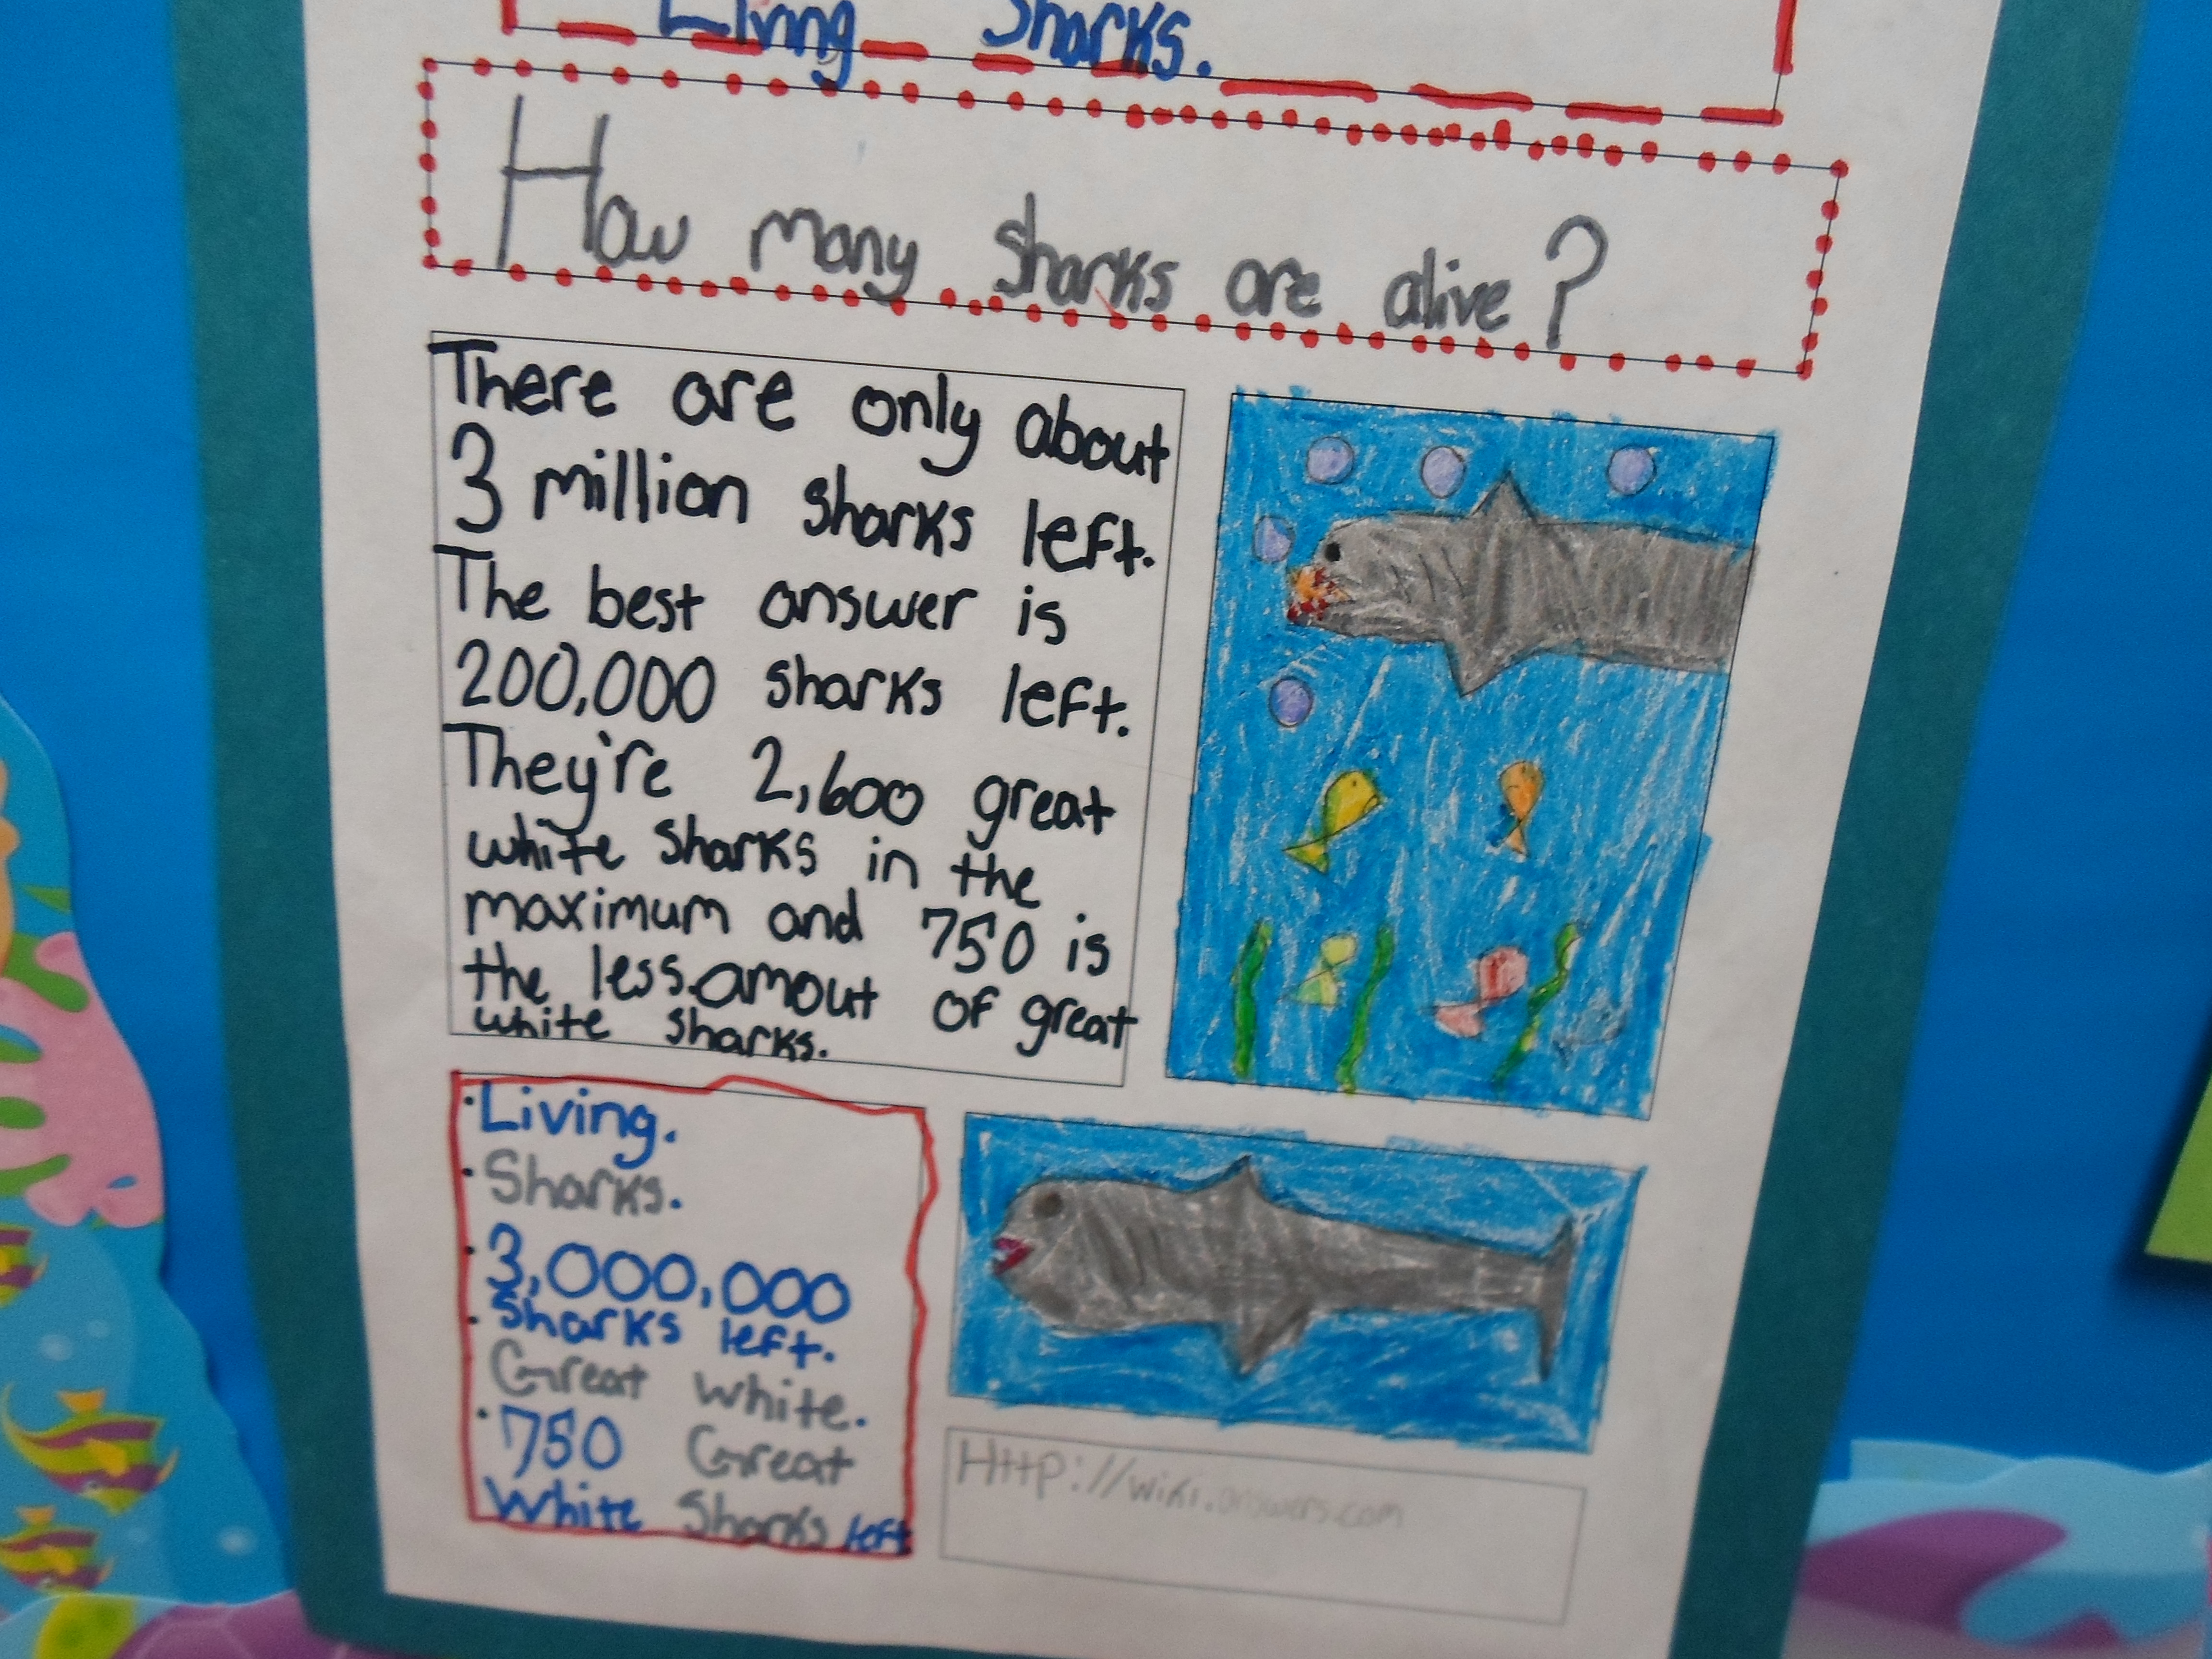 Living Sharks.
How many sharks are alive?
There are only about
3 million sharks left.
The best answer is
200,000 sharks left.
They're 2,600 great
white sharks in the
maximum and 750 is
the less amout of great
white sharks.
• Living.
• Sharks.
• 3,000,000
• Sharks left.
Great white.
• 750 Great
White Sharks left
Http://wiki.answers.com